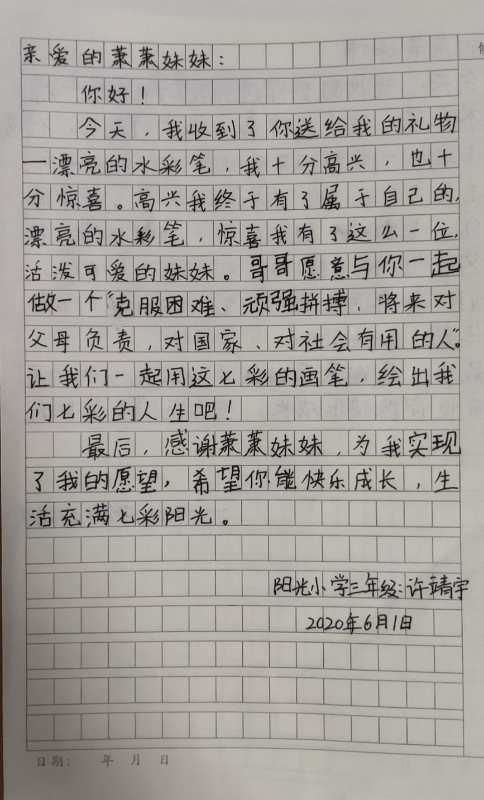 亲爱的萧萧妹妹：
你好！
今天，我收到了你送给我的礼物
一漂亮的水彩笔，我十分高兴，也十
分惊喜。高兴我终于有了属于自己的，
漂亮的水彩笔，惊喜我有了这么一位，
活泼可爱的妹妹。哥哥愿意与你一起
做一个“克服困难、顽强拼搏，将来对
父母负责，对国家、对社会有用的人”。
让我们一起用这七彩的画笔，绘出我
们七彩的人生吧！
最后，感谢萧萧妹妹，为我实现
了我的愿望，希望你能快乐成长，生
活充满七彩阳光。
阳光小学三年级：许靖宇
2020年6月1日
日期： 年 月 日